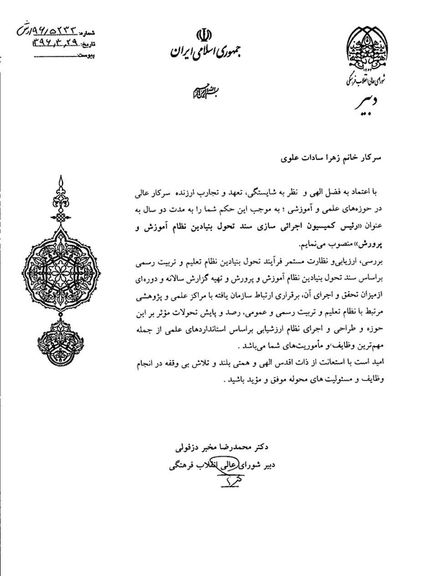 شماره: ۹۶/۵۲۳۲/دش
تاریخ: ۱۳۹۶,۳,۲۹
پیوست:
جمهوری اسلامی ایران
شورای عالی انقلاب فرهنگی
دبیر
سرکار خانم زهرا سادات علوی
با اعتماد به فضل الهی و نظر به شایستگی، تعهد و تجارب ارزنده سرکار عالی
در حوزه‌های علمی و آموزشی ؛ به موجب این حکم شما را به مدت دو سال به
عنوان «رئیس کمیسیون اجرائی سازی سند تحول بنیادین نظام آموزش و
پرورش» منصوب می‌نمایم.
بررسی، ارزیابی‌و نظارت مستمر فرآیند تحول بنیادین نظام تعلیم و تربیت رسمی
براساس سند تحول بنیادین نظام آموزش و پرورش و تهیه گزارش سالانه و دوره‌ای
ازمیزان تحقق و اجرای آن، برقراری ارتباط سازمان یافته با مراکز علمی و پژوهشی
مرتبط با نظام تعلیم و تربیت رسمی و عمومی، رصد و پایش تحولات مؤثر بر این
حوزه و طراحی و اجرای نظام ارزشیابی براساس استانداردهای علمی از جمله
مهم‌ترین وظایف و مأموریت‌های شما می‌باشد .
امید است با استعانت از ذات اقدس الهی و همتی بلند و تلاش بی وقفه در انجام
وظایف و مسئولیت های محوله موفق و مؤید باشید .
دکتر محمدرضا مخبر دزفولی
دبیر شورای عالی انقلاب فرهنگی